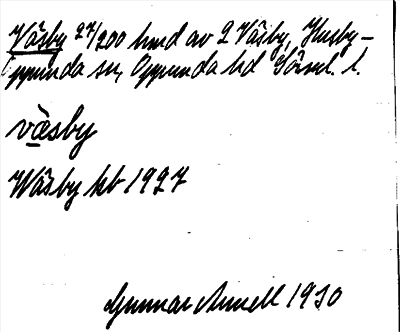 Väsby 27/200 hmd av 2 Väsby, Husby-
Oppunda sn, Oppunda hd Sörml. l.
väsby
Wäsby kb 1927
Gunnar Annell 1930